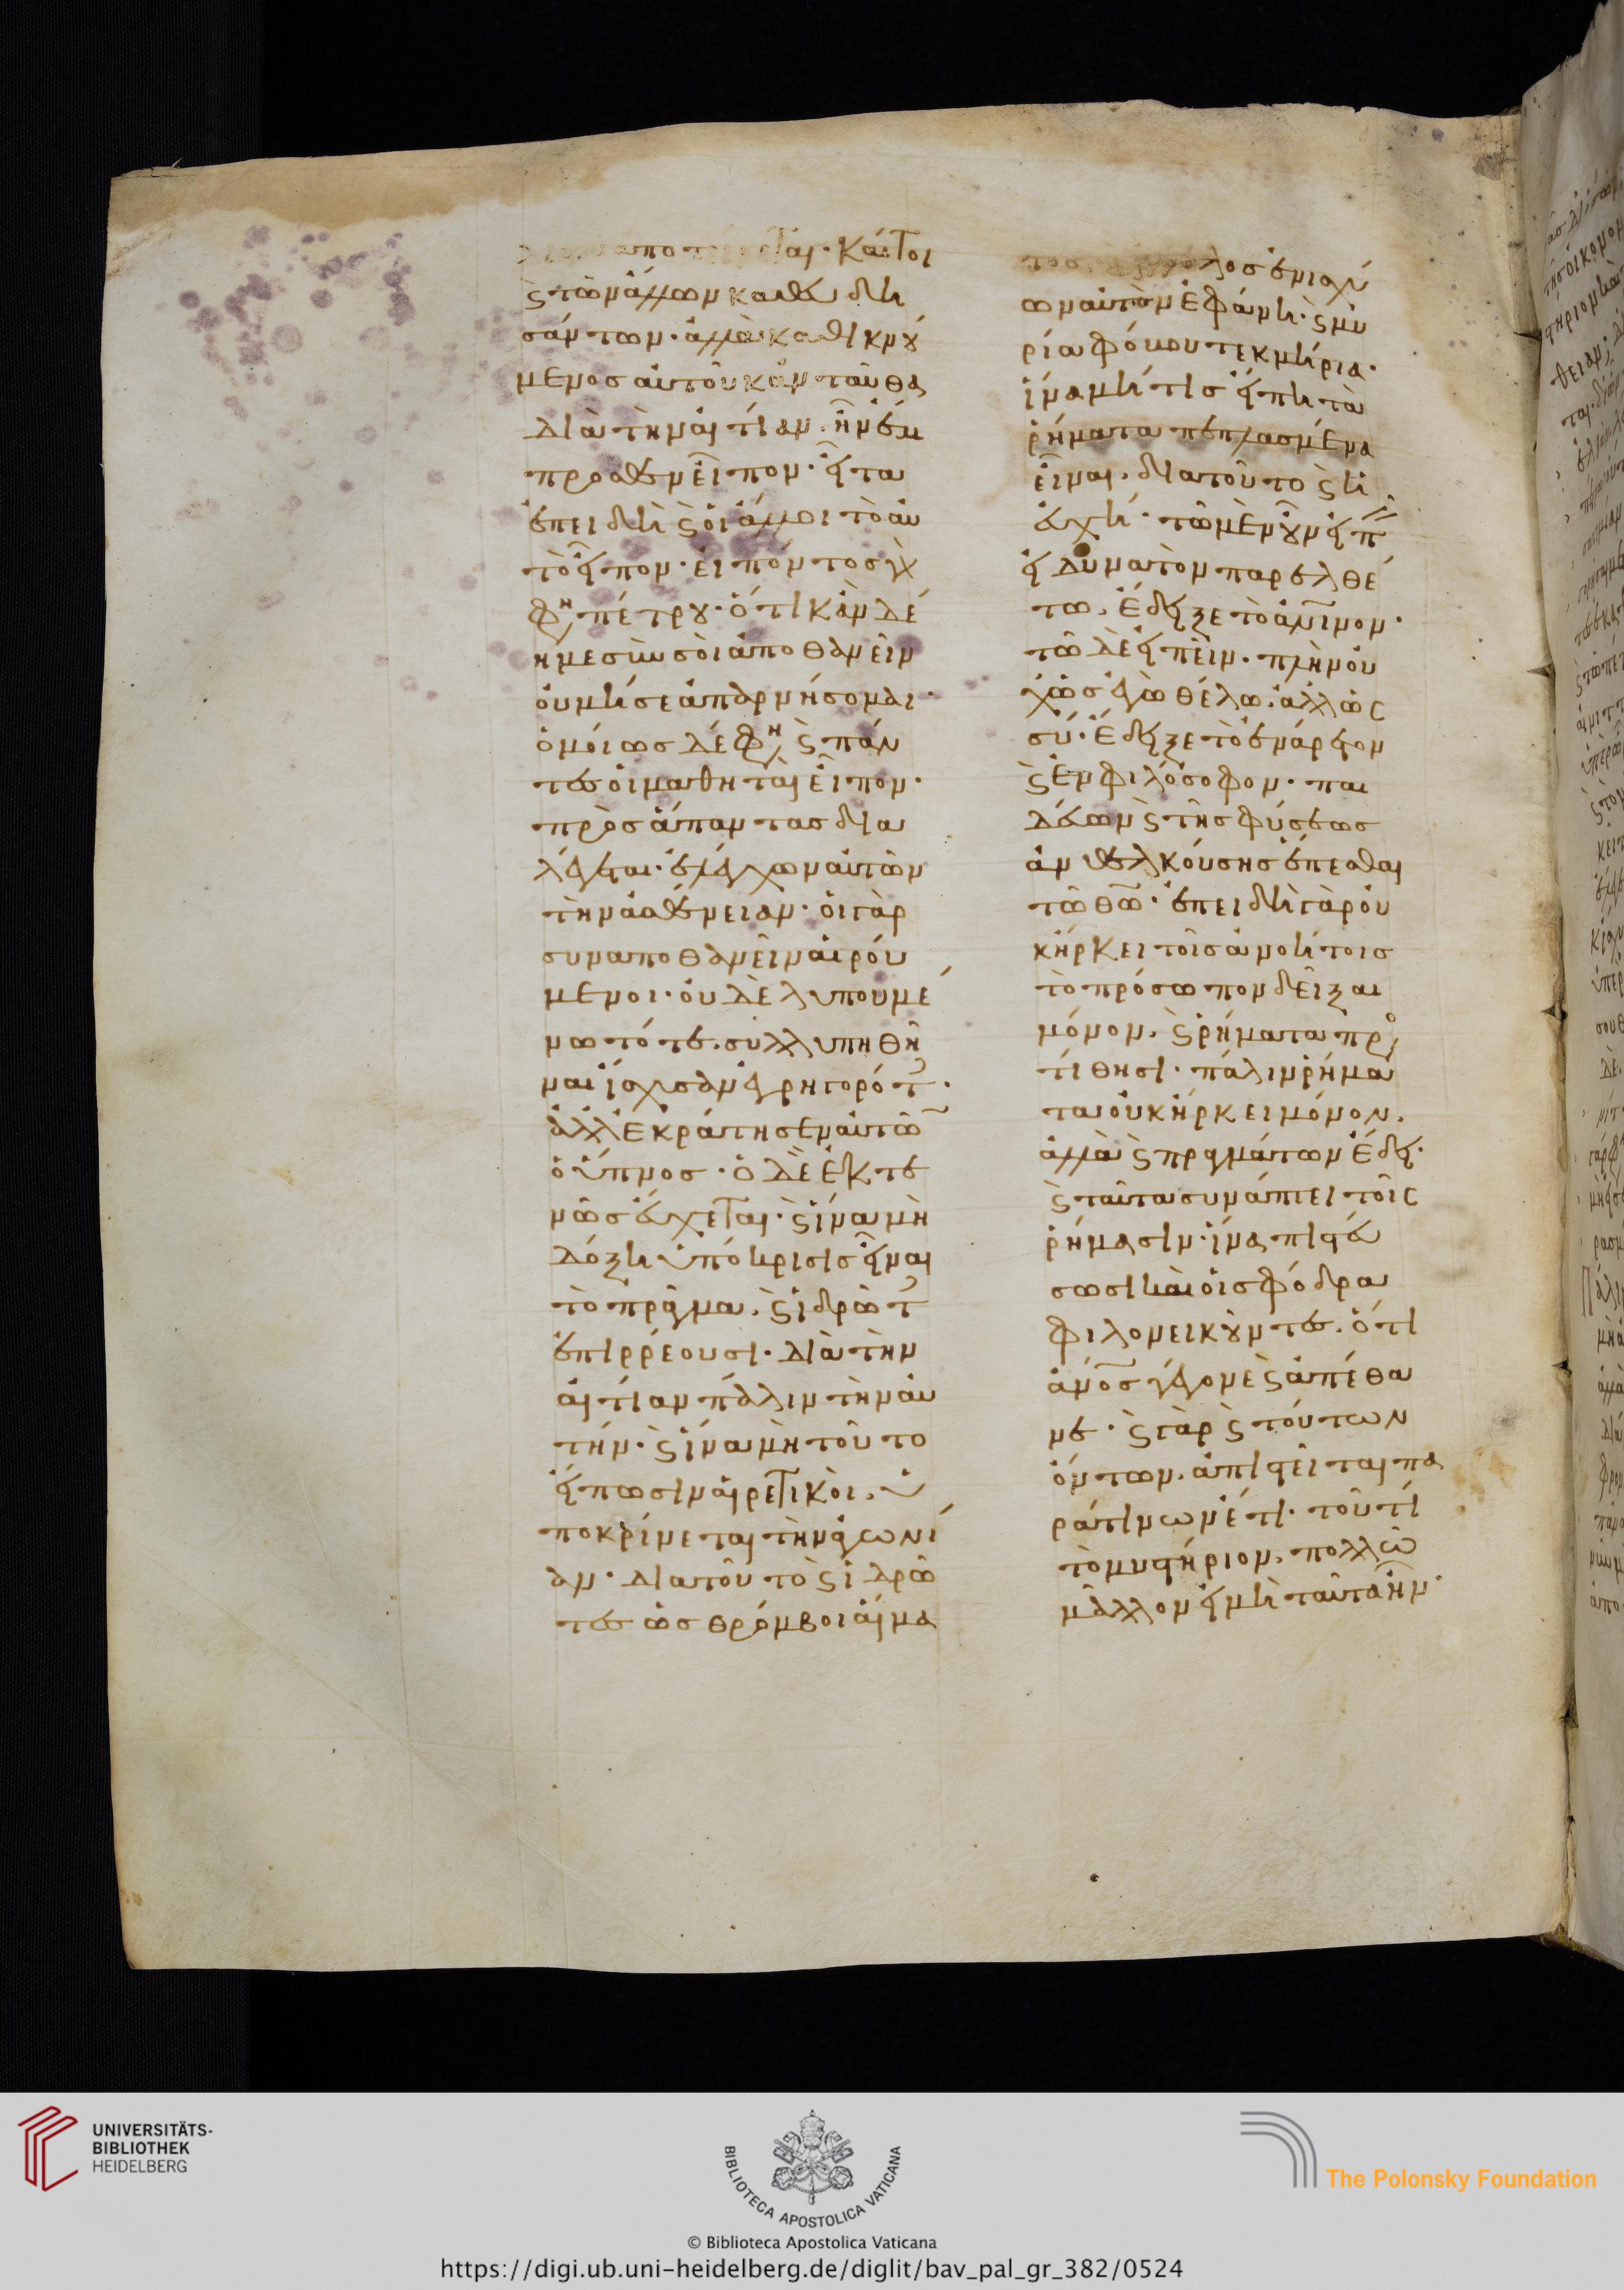 ἀποτείνεται· καίτοι
ϛ τῶν ἄλλων καθευδη
σάντων· ἀλλὰ καθικνȣ́
μενος αὐτοῦ κἀνταῦθα
διὰ τὴν αἰτίαν ἣν ἔμ
προσθεν εἶπον· εἶτα
ἐπειδὴ ϛ οἱ ἄλλοι τὸ αὐ
τὸ εἶπον· εἰπόντος γὰρ
φη πέτρȣ· ὅτι κἂν δέ
ῃ με σὺν σοὶ ἀποθανεῖν
οὐ μή σε ἀπαρνήσομαι·
ὁμοίως δέ φη ϛ πάν
τες οἱ μαθηταὶ εἶπον·
πρὸς ἅπαντας δια
λέγεται· ἐλέγχων αὐτῶν
τὴν ἀσθένειαν· οἱ γὰρ
συναποθανεῖν αἱρού
μενοι· οὐδὲ λυπουμέ
νω τότε. συλλυπηθῆ
ναι ἴσχυσαν ἐγρηγορότ·
ἀλλ ἐκράτησεν αὐτῶ
ὁ ὕπνος· ὁ δὲ ἐκτε
νῶς εὔχεται· ϛ ἵνα μὴ
δόξη ὑπόκρισις εἶναι
τὸ πρᾶγμα. ϛ ἱδρῶτ
ἐπιρρέουσι· διὰ τὴν
αἰτίαν πάλιν τὴν αὐ
τήν· ϛ ἵνα μὴ τοῦτο
εἴπωσιν αἱρετικοὶ. ὑ
ποκρίνεται τὴν ἀγωνί
αν· διατοῦτο ϛ ἱδρῶ
τες ὡς θρόμβοι αἵμα
τος ἄγγελος ἐνισχύ
ων αὐτὸν ἐφάνη· ϛ μυ
ρία φόβου τεκμήρια·
ἵνα μή τις εἴπη τὰ
ῥήματα πεπλασμένα
εἶναι. διατοῦτο ϛ ἡ
εὐχή· τῶ μὲν ȣν εἰπ
εἰ δυνατὸν παρελθέ
τω. ἔδειξε τὸ ἀνινον·
τῶ δὲ εἰπεῖν. πλὴν οὐ
χ ὡς ἐγὼ θέλω. ἀλλ ὡς
σύ. ἔδειξε τὸ ἐνάρετον
ϛ ἐμφιλόσοφον· παι
δεύων ϛ τῆς φύσεως
ἀνθελκούσης ἕπεσθαι
τῶ θῶ· ἐπειδὴ γὰρ οὐ
κ ἤρκει τοῖς ἀνοήτοις
τὸ πρόσωπον δεῖξαι
μόνον. ϛ ῥήματα προ
τίθησι· πάλιν ῥήμα
τα οὐκ ἤρκει μόνον.
ἀλλὰ ϛ πραγμάτων ἔδει·
ϛ ταῦτα συνάπτει τοῖς
ῥήμασιν· ἵνα πιστεύ
σωσι καὶ οἱ σφόδρα
φιλονεικȣντες. ὅτι
ἀνος γέγονε ϛ ἀπέθα
νε· ϛ γὰρ ϛ τούτων
ὄντων. ἀπιστεῖται πα
ρά τινων ἔτι· τοῦτὶ
τὸ μυστήριον. πολλῶ
μᾶλλον εἰ μὴ ταῦτα ἦν·
UNIVERSITÄTS-
BIBLIOTHEK
HEIDELBERG
BIBLIOTECA APOSTOLICA VATICANA
© Biblioteca Apostolica Vaticana
The Polonsky Foundation
https://digi.ub.uni-heidelberg.de/diglit/bav_pal_gr_382/0524